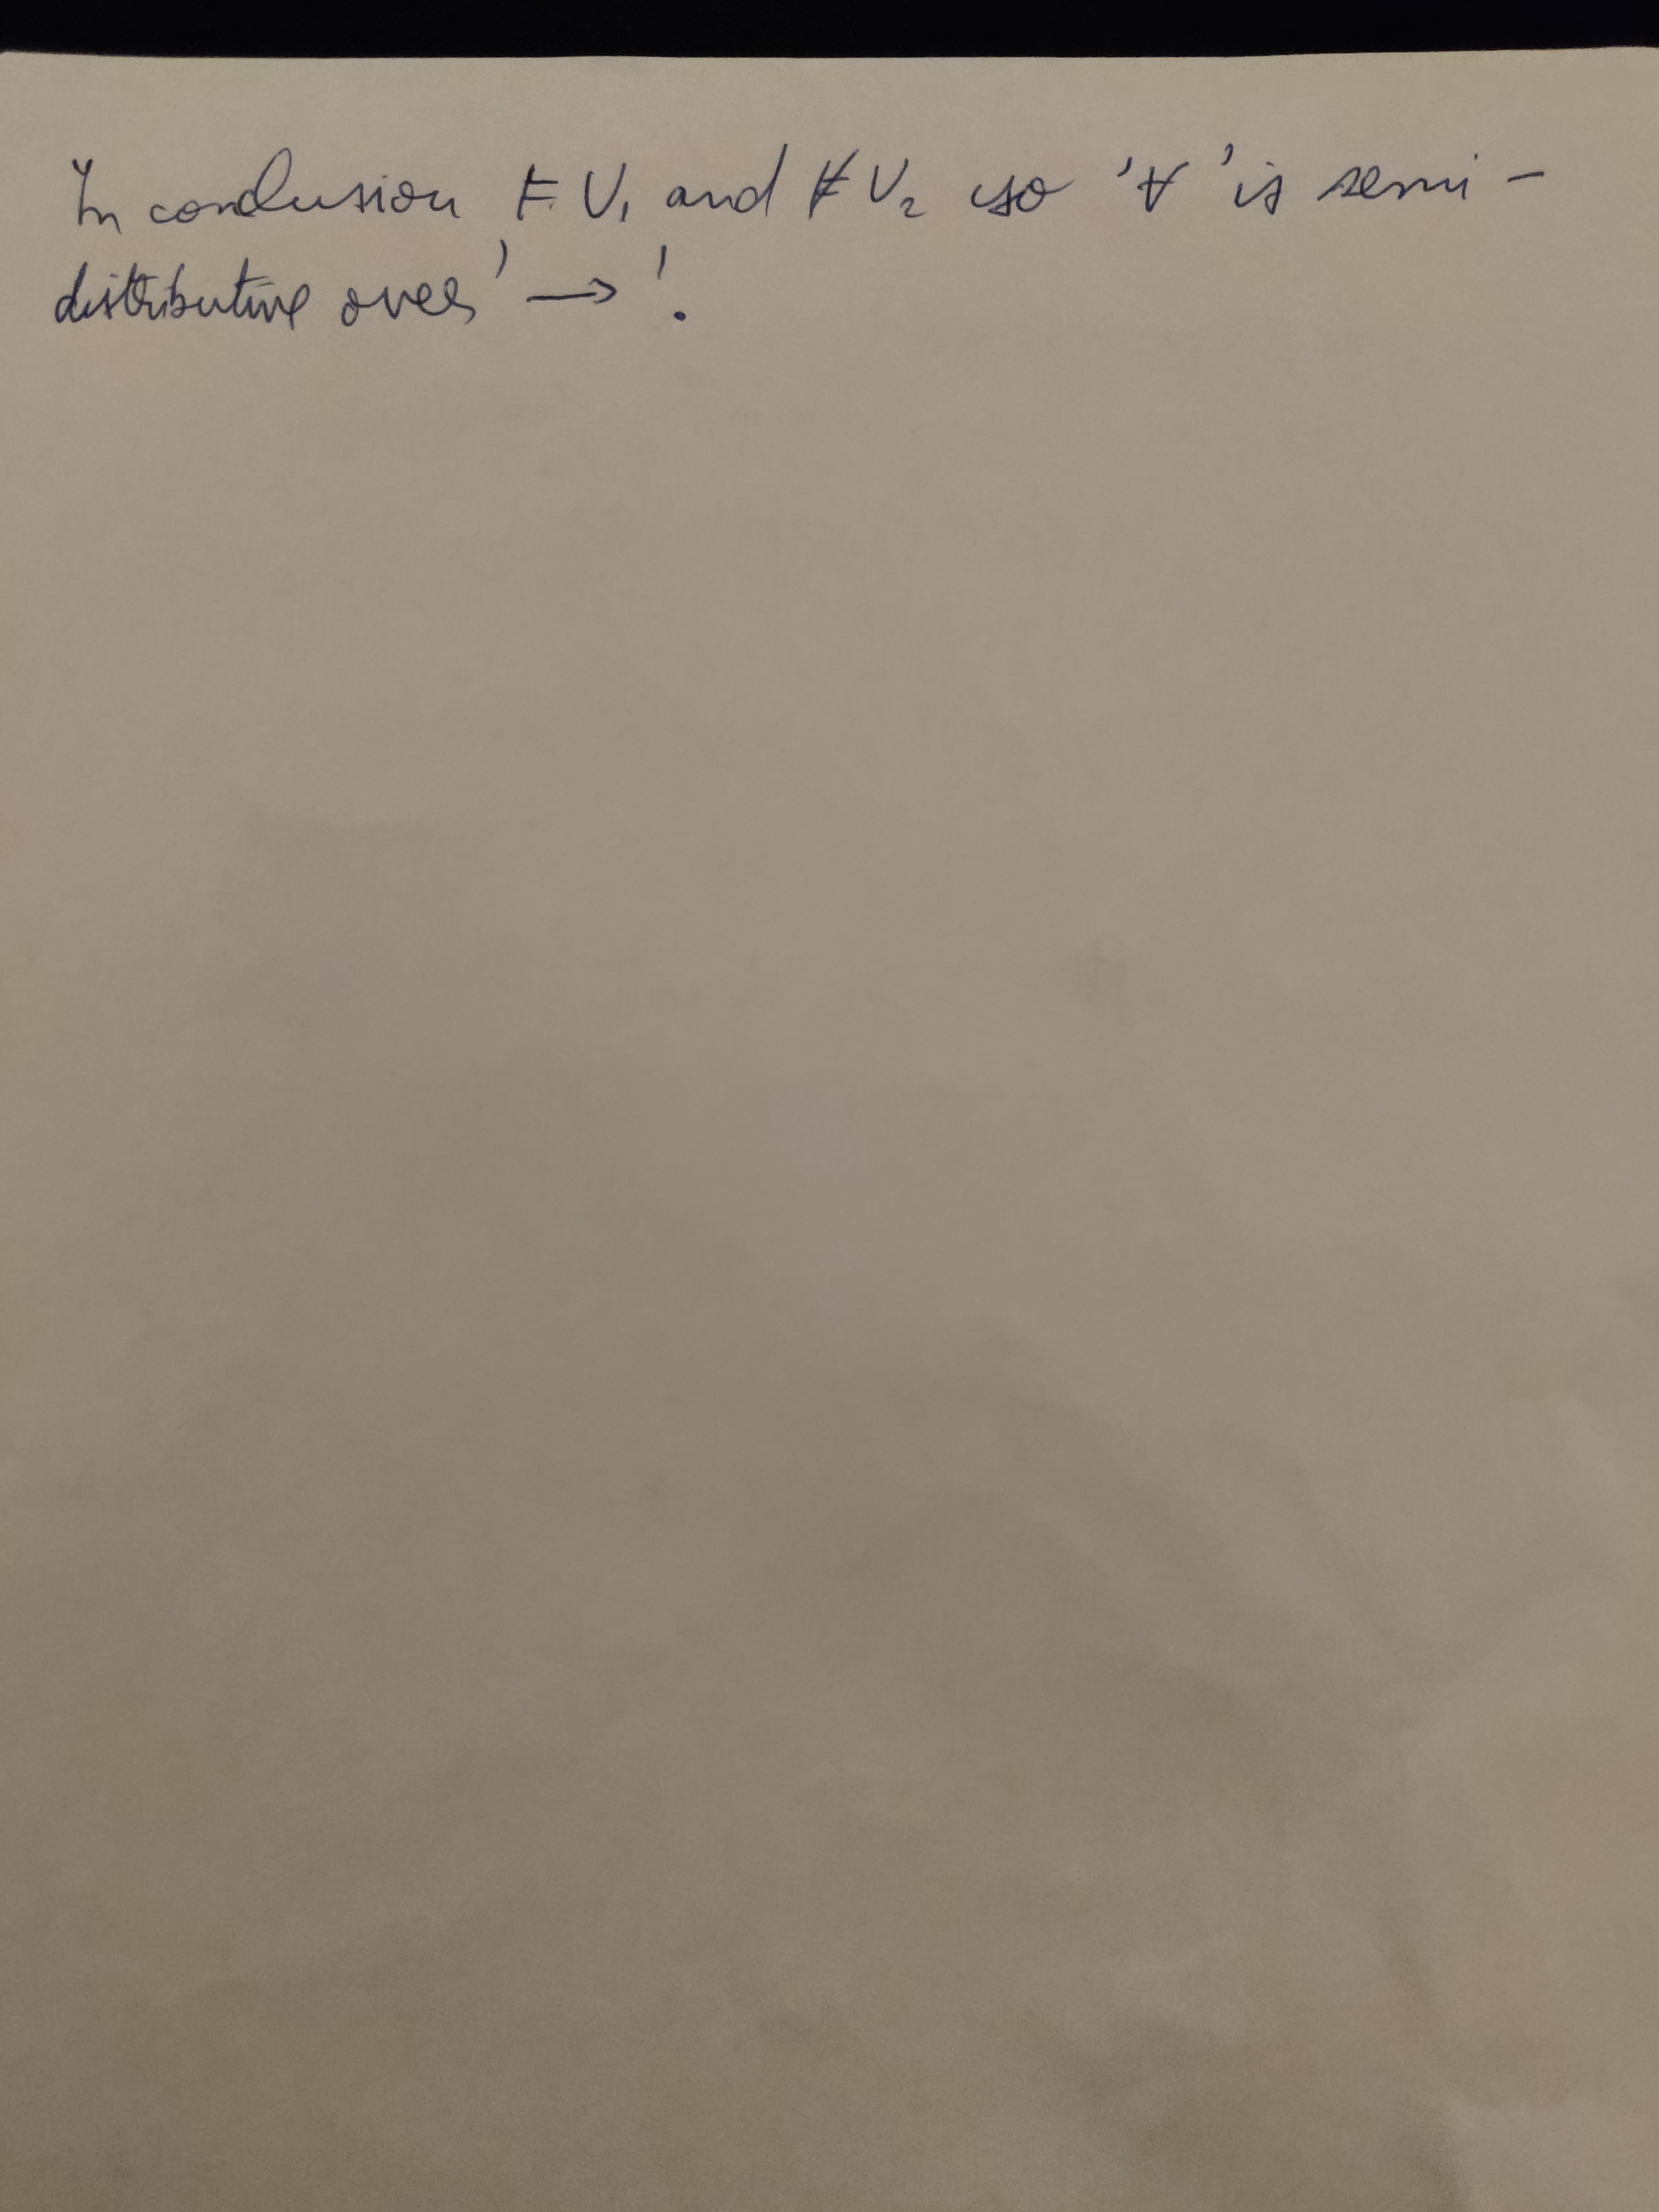 In conclusion ⊨ U₁ and ⊭ U₂ so '∀' is semi-
distributive over '→'.